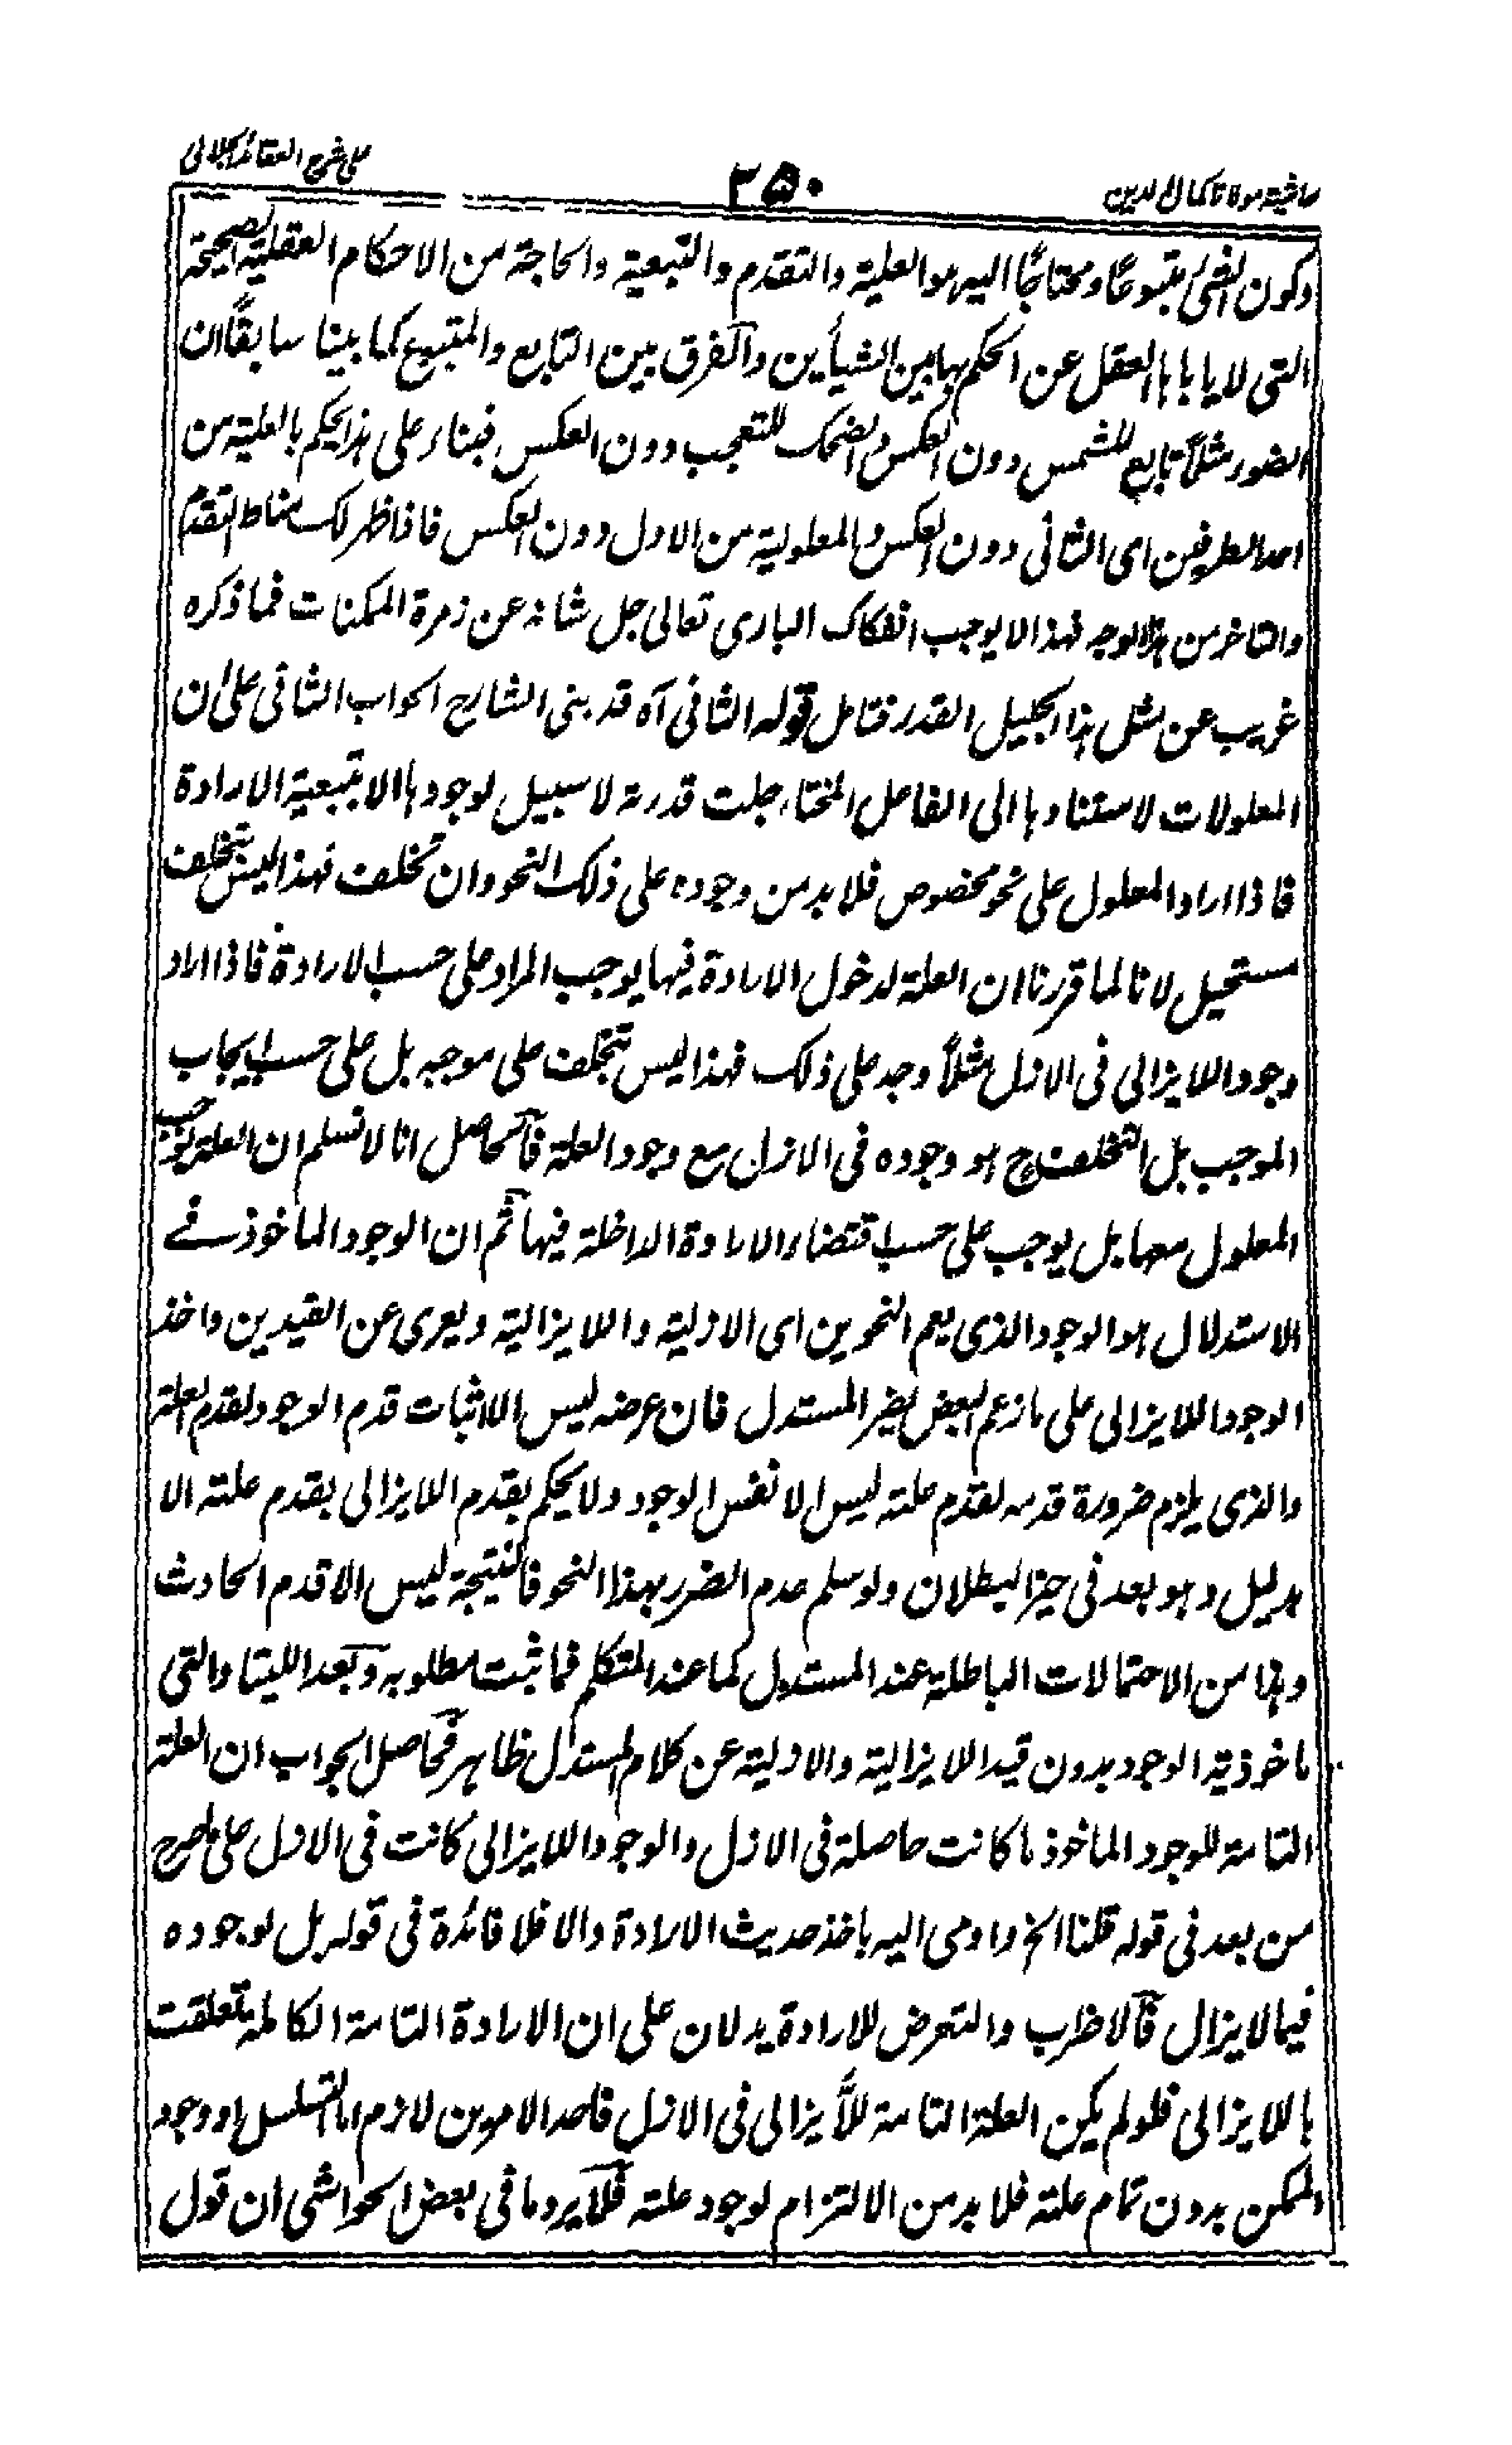 حاشية مولانا كمال الدين
٢٥٠
على شرح العقائد الجلالى
وكون الشئ متبوعًا ومحتاجًا اليه هو العلية والتقدم والتبعية والحاجة من الاحكام العقلية الصحيحة
التى لا ياباها العقل عن الحكم بها بين الشيأين والفرق بين التابع والمتبوع كما بينا سابقًا ان
الضوء مثلًا تابع للشمس دون العكس والضحك للتعجب دون العكس فبناء على هذا يحكم بالعلية من
احد الطرفين اى الثانى دون العكس والمعلولية من الاول دون العكس فاذا ظهر لك مناط التقدم
والتاخر من هذا الوجه فهذا لا يوجب انفكاك البارى تعالى جل شانه عن زمرة الممكنات فما ذكره
غريب عن مثل هذا الجليل القدر فتامل قوله الثانى آه قد بنى الشارح الجواب الثانى على ان
المعلولات لاستنادها الى الفاعل المختار جلت قدرته لا سبيل لوجودها الا بتبعية الارادة
فاذا اراد المعلول على نحو مخصوص فلا بد من وجوده على ذلك النحو وان تخلف فهذا ليس بتخلف
مستحيل لانا لما قررنا ان العلة لدخول الارادة فيها يوجب المراد على حسب الارادة فاذا اراد
وجود اللايزالى فى الازل مثلًا وجد على ذلك فهذا ليس تخلف على موجبه بل على حسب ايجاب
الموجب بل التخلف ح هو وجوده فى الازل مع وجود العلة فالحاصل انا لا نسلم ان العلة توجب
المعلول معها بل يوجب على حسب اقتضاء الارادة الداخلة فيها ثم ان الوجود الماخوذ فے
الاستدلال هو الوجود الذى يعم النحوين اى الازلية واللايزالية ويعرى عن القيدين واخذ
الوجود اللايزالى على ما زعم البعض يضر المستدل فان عرضه ليس الا اثبات قدم الوجود لقدم العلة
والذى يلزم ضرورة قدمه لقدم علته ليس الا نفس الوجود ولا يحكم بقدم اللايزالى بقدم علته الا
بدليل وهو بعد فى حيز البطلان ولو سلم عدم الضرر بهذا النحو فالنتيجة ليس الا قدم الحادث
وهذا من الاحتمالات الباطلة عند المستدل كما عند المتكلم فما ثبت مطلوبه وبعد اللتيا والتى
ماخوذية الوجود بدون قيد اللايزالية والازلية عن كلام المستدل ظاهر فحاصل الجواب ان العلة
التامة للوجود الماخوذ ما كانت حاصلة فى الازل والوجود اللايزالى كانت فى الازل على ما صرح
من بعد فى قوله قلنا الخ واومى اليه باخذ حديث الارادة والا فلا فائدة فى قوله بل لوجوده
فيما لا يزال فالاضراب والتعرض للارادة يدلان على ان الارادة التامة الكاملة تعلقت
باللايزالى فلو لم يكن العلة التامة للايزالى فى الازل فاحد الامرين لازم اما التسلسل او وجود
الممكن بدون تمام علته فلا بد من الالتزام لوجود علته فلا يرد ما فى بعض الحواشى ان قول